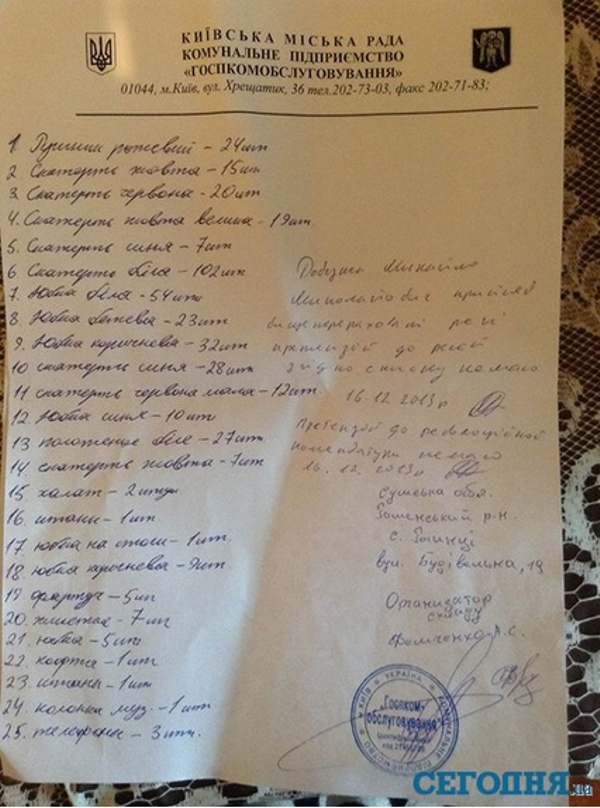 КИЇВСЬКА МІСЬКА РАДА
КОМУНАЛЬНЕ ПІДПРИЄМСТВО
«ГОСПКОМОБСЛУГОВУВАННЯ»
01044, м.Київ, вул. Хрещатик, 36 тел.202-73-03, факс 202-71-83;
1 рожевий – 24шт
2. Скатерть жовта – 15шт
3. Скатерть червона – 20шт
4. Скатерть жовта велика – 19шт.
5. Скатерть синя – 7шт
6. Скатерть біла – 102шт
7. Юбка біла – 54шт
8. Юбка бежева – 23шт
9. Юбка коричнева – 32шт
10 скатерть синя – 28шт
11 скатерть червона мала – 12шт.
12. Юбка синя – 10шт
13 полотенце біле – 27шт
14. скатерть жовта – 7шт
15. халат – 2штуки
16. штани – 1шт.
17. юбка на столи – 1шт.
18. юбка коричнева – 9шт
19 фартук – 5шт
20. – 7шт
21. юбка – 5шт
22. кофта – 1шт
23. штани – 1шт
24. колонка муз. – 1шт
25. телефоны – 3шт.
Михайло
Миколайович прийняв
вище перераховані речі
претензій до речей
згідно списку не маю
16.12.2013р
Претензій до революційної
комендатури не маю
16.12.2013р
Сумська обл.
р-н.
с.
вул. Будівельна, 19
Организатор
складу
Фомченко А.С.
УКРАЇНА
КИЇВ
КОМУНАЛЬНЕ ПІДПРИЄМСТВО
"Госпком-
обслуговування"
СЕГОДНЯ.ua